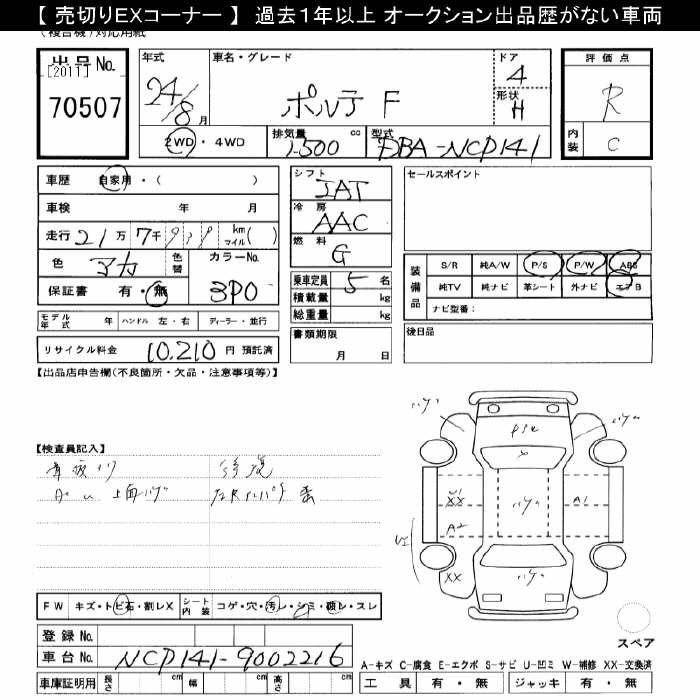 【 売切りEXコーナー 】 過去１年以上 オークション出品歴がない車両
(複合機)対応用紙
出品 No.
[2011]
70507
年式
24/8 月
車名・グレード
ポルテ F
ドア
4
形状
H
評価点
R
内装
C
2WD・4WD
排気量
1500 cc
型式
DBA-NCP141
車歴 自家用・( )
車検 年 月
走行 21万 7千 km マイル( )
色 アカ
色替
カラーNo.
3P0
保証書 有・無
モデル年式 年 ハンドル 左・右 ディーラー・並行
リサイクル料金 10,210 円 預託済
シフト
IAT
冷房
AAC
燃料
G
乗車定員 5 名
積載量 kg
総重量 kg
書類期限
月 日
セールスポイント
装備品
S/R 純A/W P/S P/W ABS
純TV 純ナビ 革シート 外ナビ エアB
ナビ型番：
後日品
【出品店申告欄(不良箇所・欠品・注意事項等)】
【検査員記入】
上面ハゲ
ハゲ
ハゲ
A1
XX
A2
ハゲ
XX
ハゲ
FW キズ・トビ石・割レX
シート内装 コゲ・穴・汚レ・シミ・破レ・スレ
登録 No.
車台 No. NCP141-9002216
車庫証明用 長さ cm 幅 cm 高さ cm
スペア
A-キズ C-腐食 E-エクボ S-サビ U-凹ミ W-補修 XX-交換済
工具 有・無 ジャッキ 有・無